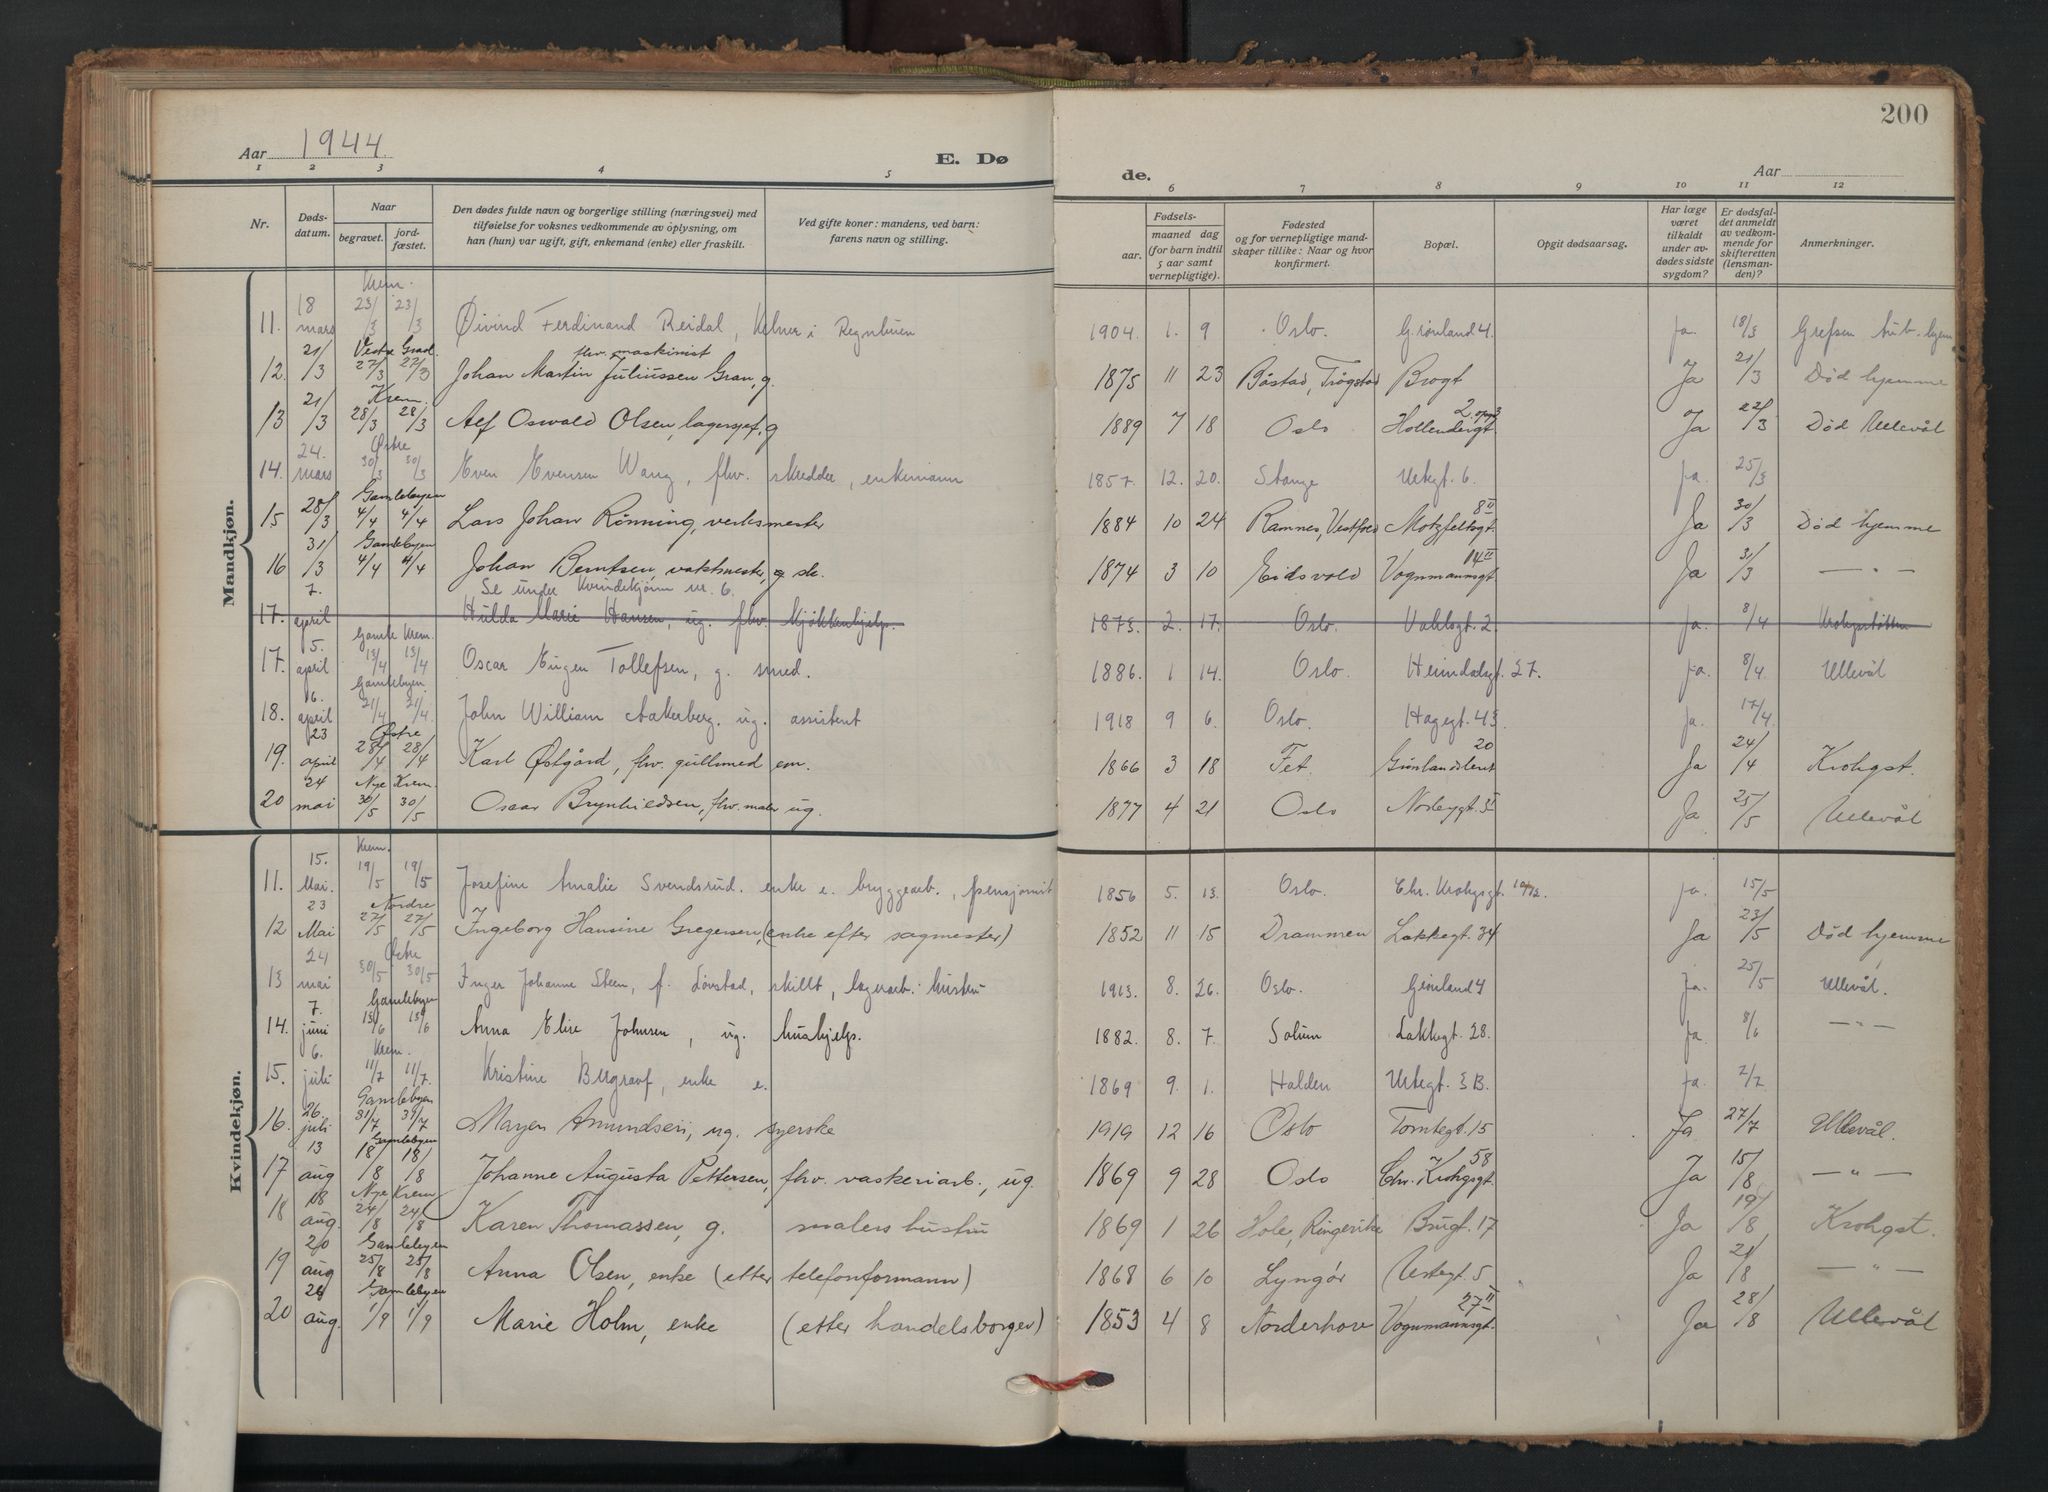 200
Aar 1944 E. Dø de. Aar
1 2 3 4 5 6 7 8 9 10 11 12
Nr. Døds-datum. Naar begravet. jord-fæstet. Den dødes fulde navn og borgerlige stilling (næringsvei) med tilføielse for voksnes vedkommende av oplysning, om han (hun) var ugift, gift, enkemand (enke) eller fraskilt. Ved gifte koner: mandens, ved barn: farens navn og stilling. Fødsels- aar. maaned dag (for barn indtil 5 aar samt vernepligtige). Fødested og for vernepligtige mandskaper tillike: Naar og hvor konfirmert. Bopæl. Opgit dødsaarsag. Har læge været tilkaldt under avdødes sidste sygdom? Er dødsfaldet anmeldt av vedkommende for skifteretten (lensmanden)? Anmerkninger.
Mandkjøn.
11. 18 mars Krem. 23/3 23/3 Øivind Ferdinand Reidal, Kelner i Regnbuen 1904. 1. 9 Oslo. Grønland 4. ja. 18/3 Grefsen tub. hjem
12. 21/3 Vestre Grav. 27/3 27/3 Johan Martin Juliussen Gran, fhv. maskinist g. 1875 11 23 Båstad, Trøgstad Brogt Ja 21/3 Død hjemme
13 21/3 Krem. 28/3 28/3 Alf Oswald Olsen, lagersjef, g 1889 7 18 Oslo Hollendergt 2 Ja 22/3 Død Ullevål
14. 24. mars Østre 30/3 30/3 Even Evensen Wang, fhv. skredder, enkemann 1857. 12. 20. Stange Urtegt. 6. ja. 25/3
15 28/3 Gamlebyen 4/4 4/4 Lars Johan Rønning, verksmester 1884 10 24 Ramnes, Vestfold Motzfeltsgt. 8 II Ja 30/3 Død hjemme
16 31/3 Gamlebyen 4/4 4/4 Johan Berntsen, vaktmester, g 1874 3 10 Eidsvold Vognmannsgt 14 II Ja 31/3 — " —
Se under Kvindekjønn nr. 6.
17. 7. april Hulda Marie Hansen, ug. fhv. kjøkkenhjelp. 1873. 2. 17. Oslo. Vahlsgt. 2. ja. 8/4 Krohgstøtten
17. 5. april Gamle Krem. 13/4 13/4 Oscar Eugen Tollefsen, g. smed. 1886. 1 14. Oslo. Heimdalsgt. 27. ja. 8/4. Ullevål
18. 16. april Gamlebyen. 21/4 21/4. John William Aakerberg. ug. assistent 1918 9 6. Oslo. Hagegt. 43 ja. 17/4.
19. 23 april Østre 28/4 28/4 Karl Østgård, fhv. gullsmed em. 1866 3 18 Fet. Grønlandsleret 20 Ja 24/4 Krohgst.
20 24 mai Nye Krem. 30/5 30/5 Oscar Brynhildsen, fhv. maler ug. 1877 4 21 Oslo Norbygt. Ja 25/5 Ullevål
Kvindekjøn.
11. 15. Mai. Krem. 19/5 19/5 Josefine Amalie Svendsrud. enke e. bryggearb., pensjonist 1856 5. 13. Oslo. Chr. Krohgsgt. ja. 15/5
12 23 Mai Nordre 27/5 27/5 Ingeborg Hansine Gregersen, (enke efter sagmester) 1852 11 15 Drammen Lakkegt. 34 Ja 23/5 Død hjemme
13 24 mai Østre 30/5 30/5 Inger Johanne Steen, f. Løvstad, skillt, lagerarb. hustru 1913. 8. 26. Oslo. Grønland 4 ja. 25/5 Ullevål.
14. 7. juni Gamlebyen 13/6 13/6 Anna Elise Johnsen, ug. hushjelp. 1882. 8. 7. Solum Lakkegt. 28. ja. 8/6 — " —
15. 6. juli Krem. 11/7 11/7. Kristine Bergrav, enke e. 1869 9. 1. Halden Urtegt. 3 B. ja. 7/7
16. 26. juli Gamlebyen 31/7 31/7 Mayen Amundsen, ug. syerske 1919 12 16 Oslo Tomtegt. 15 Ja 27/7 Ullevål.
17 13 aug Gamlebyen 18/8 18/8 Johanne Augusta Pettersen, fhv. vaskeriarb., ug. 1869 9 28 Oslo Chr. Krohgsgt. 58 Ja 15/8 — " —
18 18 aug. Nye Krem 24/8 24/8 Karen Thomassen, g. malers hustru 1869 1 26 Hole, Ringerike Brugt. 17 Ja 19/8 Krohgst.
19 20 aug Gamlebyen 25/8 25/8 Anna Olsen, enke (etter telefonformann) 1868 6 10 Lyngør Urtegt. 5 Ja 21/8 — " —
20 26 aug. Gamlebyen 1/9 1/9 Marie Holm, enke (etter handelsborger) 1853 4 8 Norderhov Vognmannsgt. 27 II Ja 28/8 Ullevål